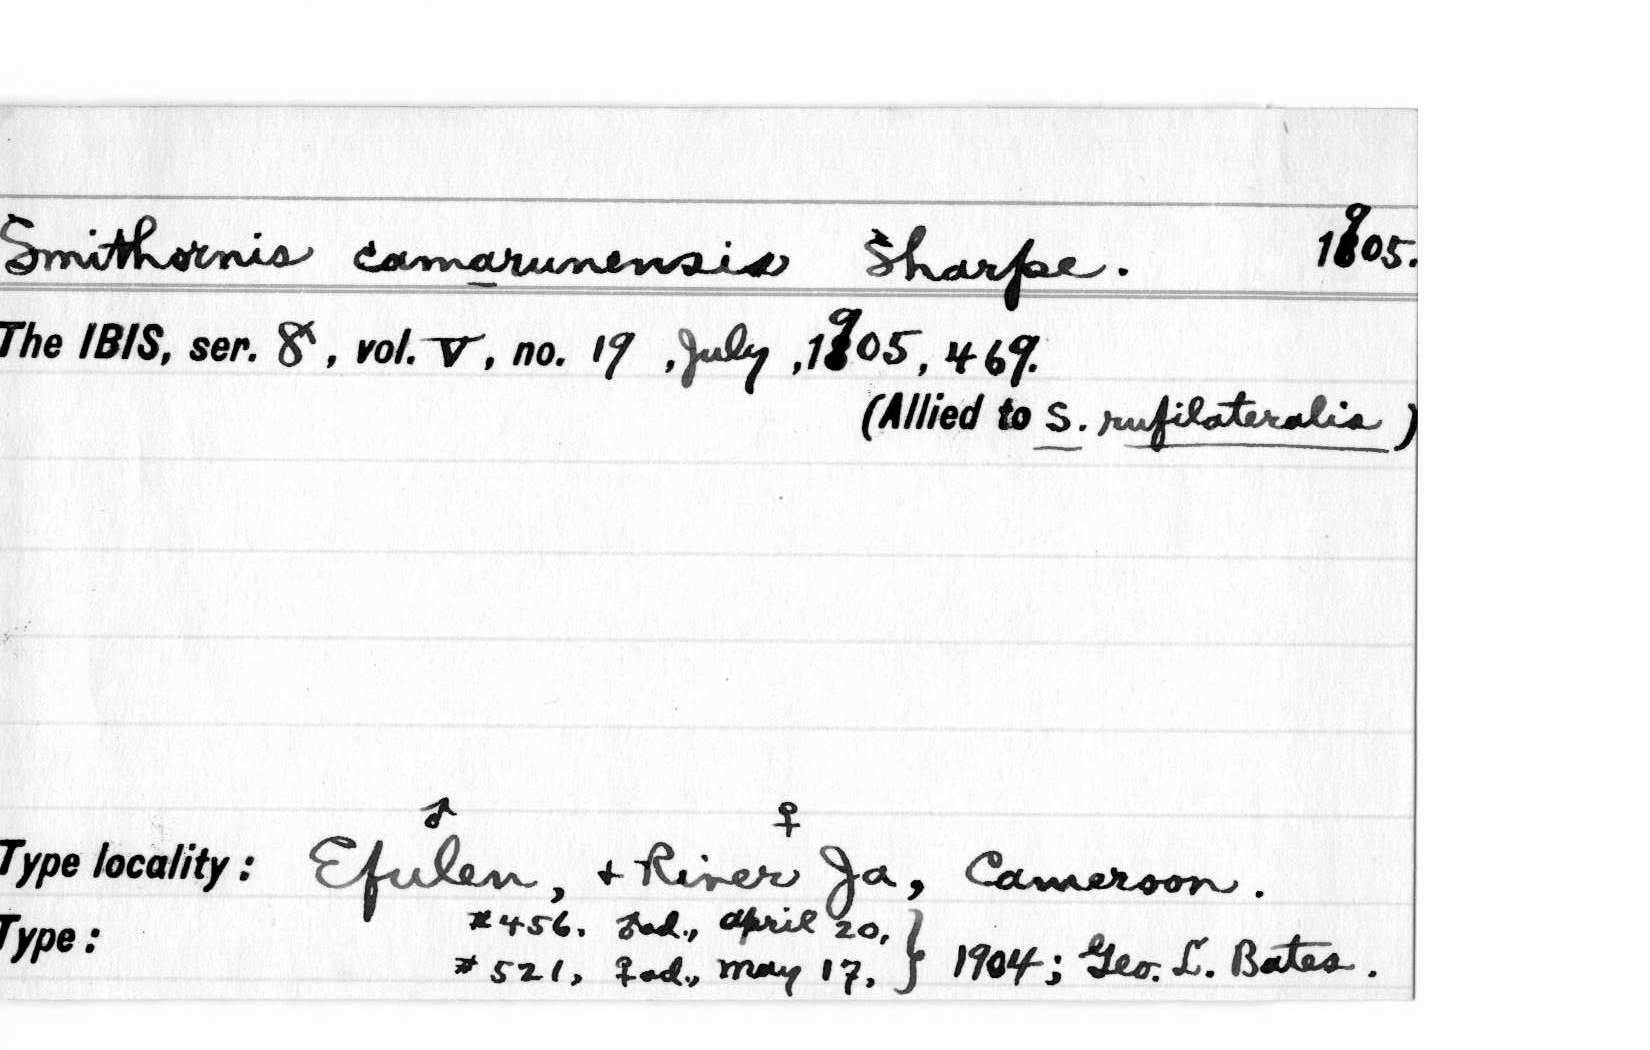 Smithornis camarunensis Sharpe. 1905.
The IBIS, ser. 8, vol. V, no. 19, July, 1905, 469.
(Allied to S. rufilateralis)
♂ ♀
Type locality: Efulen, + River Ja, Cameroon.
Type: #456. ♂ad., April 20, } 1904; Geo. L. Bates.
#521, ♀ad., May 17,